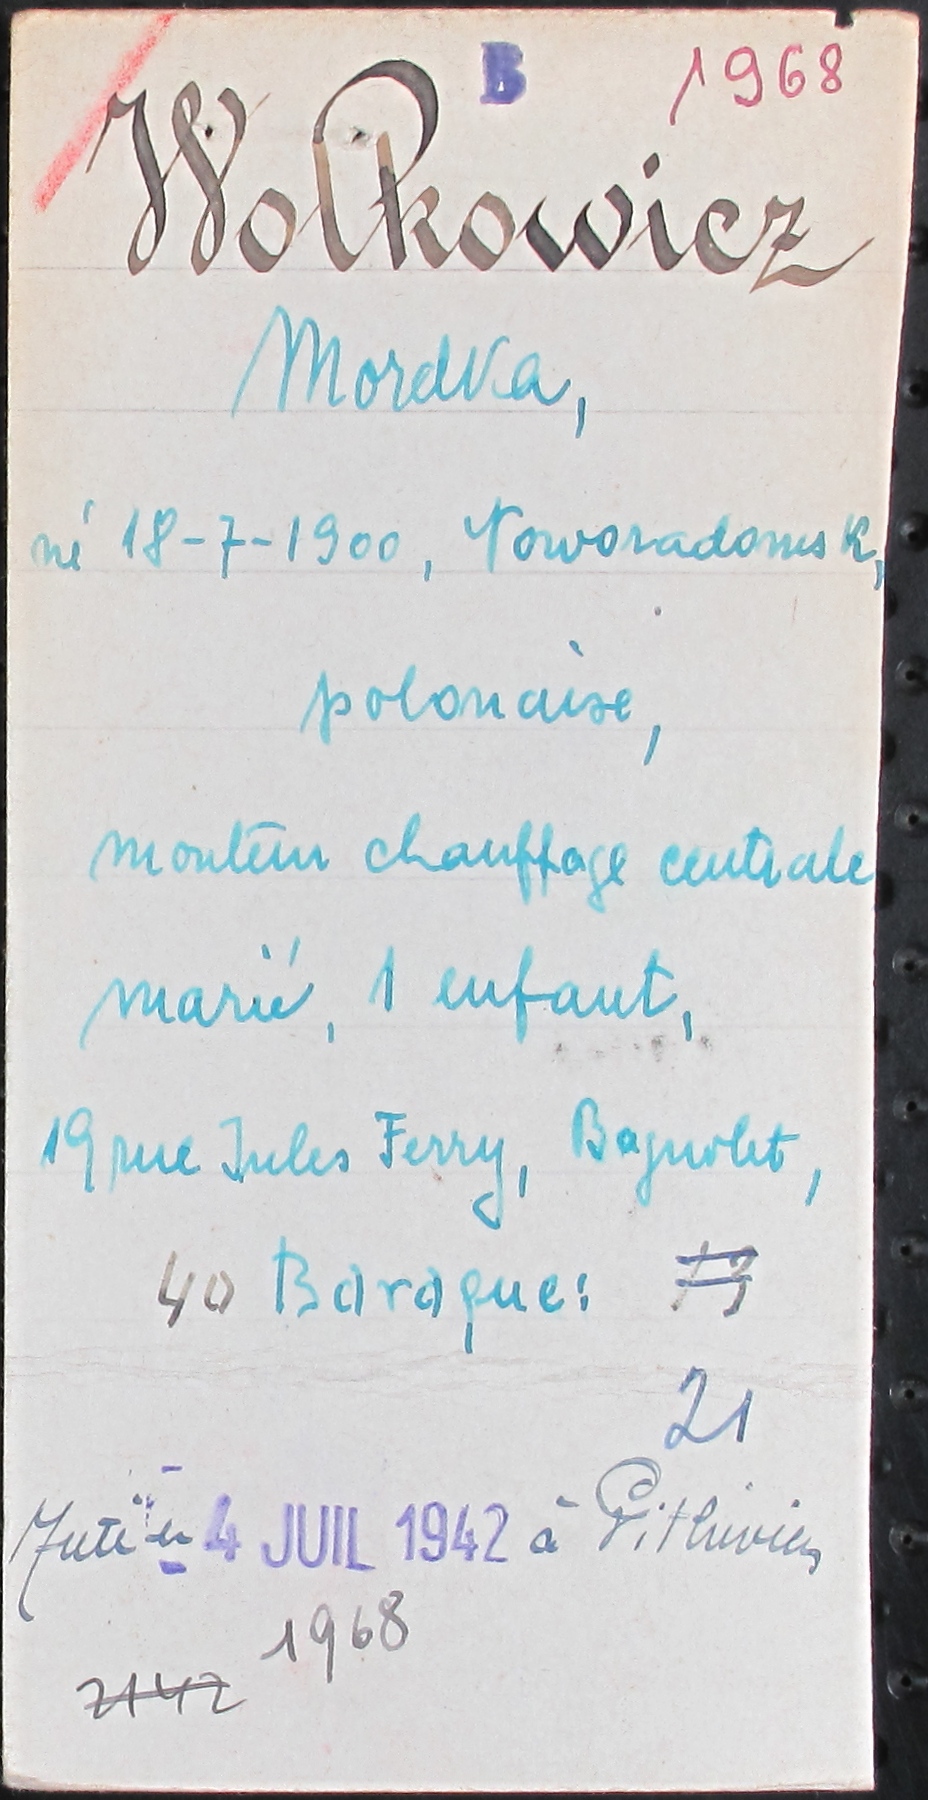 B 1968
Wolkowicz
Mordka,
né 18-7-1900, Noworadomsk,
polonaise,
monteur chauffage centrale
marié, 1 enfant,
19 rue Jules Ferry, Bagnolet,
40 Baraque: 13
21
4 JUIL 1942 à Pithiviers
1968
2142